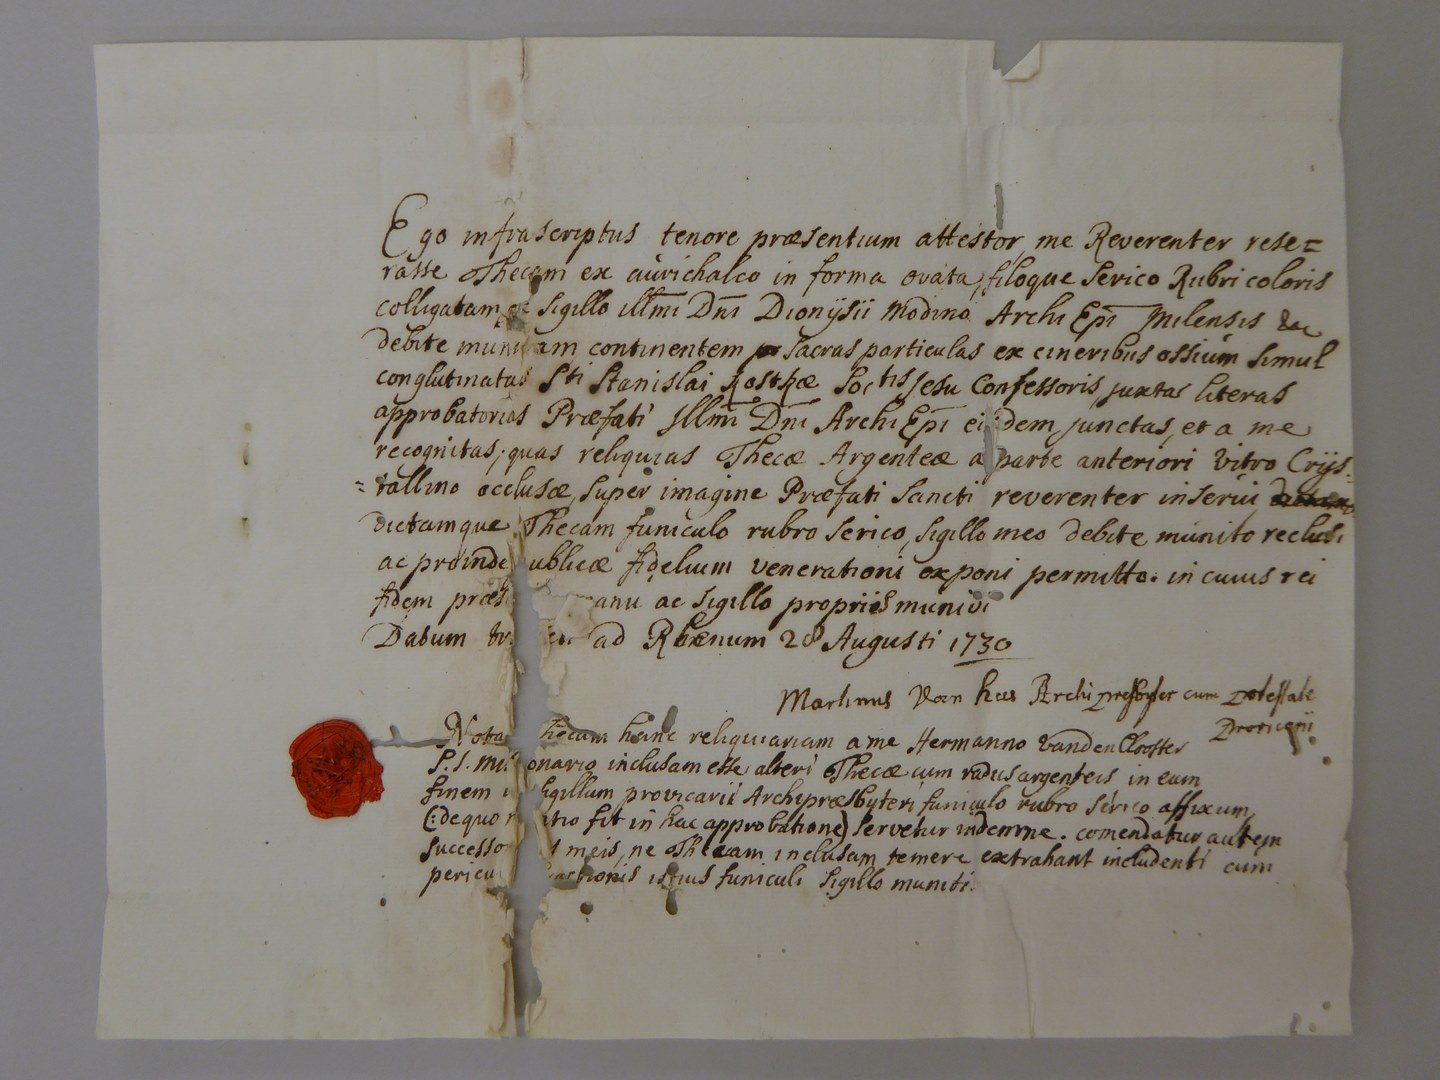 Ego infrascriptus tenore præsentium attestor, me Reverenter rese=
rasse Thecam ex aurichalco in forma ovata, filoque serico Rubri coloris
colligatam et sigillo illmi Dni Dionÿsii Modino Archi Epi Milensis &c
debite munitam continentem sacras particulas ex cineribus ossium simul
conglutinatas Sti Stanislai Kostkæ Soctis Jesu Confessoris, juxta literas
approbatorias Præfati Illmi Dni Archi Epi eidem junctas, et a me
recognitas; quas reliquias Thecæ Argenteæ a parte anteriori vitro Crÿs=
=tallino occlusæ, super imagine Præfati sancti reverenter inserui,
dictamque Thecam funiculo rubro serico, sigillo meo debite munito reclusi
ac proinde ublicæ fidelium venerationi exponi permitto. in cuius rei
fidem præs anu ac sigillo propriis munivi
Datum ad Rhenum 28 Augusti 1730
Martinus van has Archipresbyter cum potestate
Provicarii
Nota hecam hanc reliquiariam a me Hermanno vanden Clooster
S.J. Mis onario inclusam esse alteri Thecæ cum radiis argenteis in eum
finem sigillum provicarii Archipræsbyteri funiculo rubro sérico affixum,
(:de quo n tio fit in hac approbatione) servetur indemne. comendatur autem
successo meis, ne Thecam inclusam temere extrahant includenti cum
pericu actionis istius funiculi sigillo muniti.